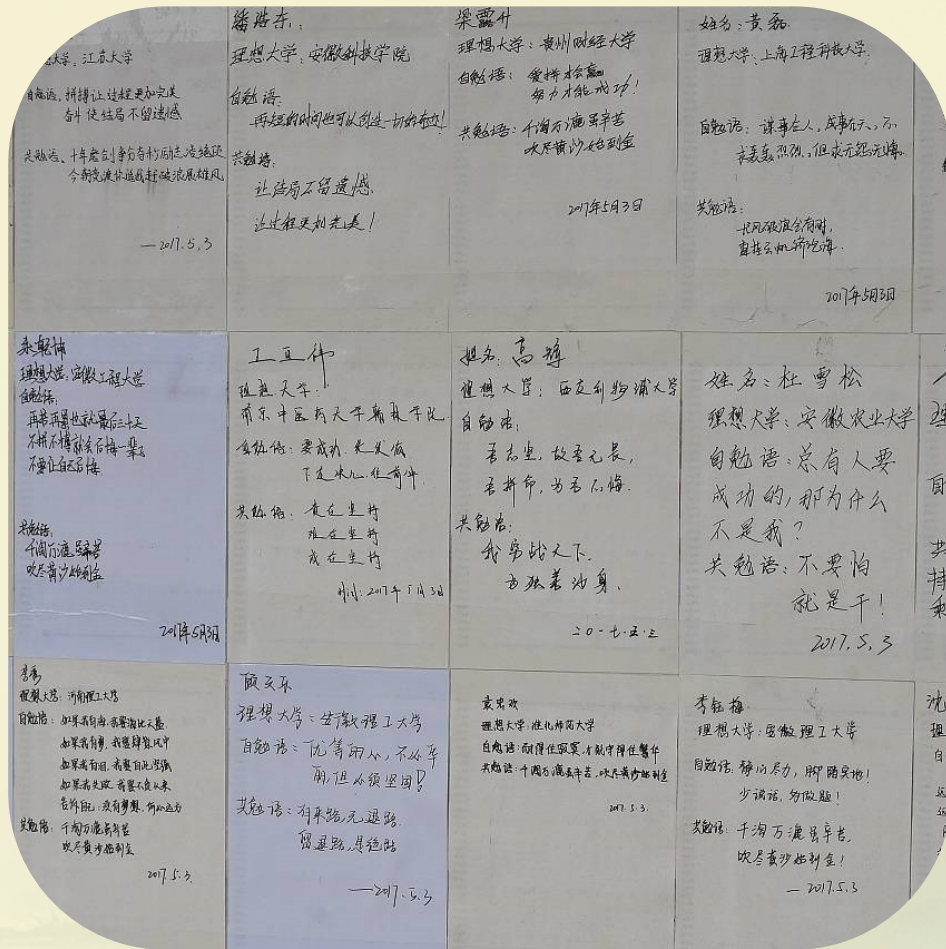 大学：江苏大学
自勉语：拼搏让过程更加完美
奋斗使结局不留遗憾
共勉语：十年磨剑争分夺秒励志凌绝顶
今朝
破浪展雄风
—2017.5.3
潘浩东：
理想大学：安徽科技学院
自勉语：
再短的时间也可以创造一切的奇迹！
共勉语：
让结局不留遗憾
让过程更加完美！
梁露升
理想大学：贵州财经大学
自勉语：爱拼才会赢
努力才能成功！
共勉语：千淘万漉虽辛苦
吹尽黄沙始到金
2017年5月3日
姓名：黄磊
理想大学：上海工程科技大学
自勉语：谋事在人，成事在天，不
求轰轰烈烈，但求无怨无悔。
共勉语：
长风破浪会有时，
直挂云帆济沧海。
2017年5月3日
理想大学：安徽工程大学
自勉语：
再苦再累也就最后三十天
不拼不搏就会后悔一辈子
不要让自己后悔
共勉语：
千淘万漉虽辛苦
吹尽黄沙始到金
2017年5月3日
理想大学：
南京中医药大学翰林学院
自勉语：要成功，先发疯
下定决心往前冲
共勉语：贵在坚持
难在坚持
成在坚持
时间：2017年5月3日
姓名：高
理想大学：西交利物浦大学
自勉语：
吾志坚，故吾无畏，
吾拼命，为吾不悔．
共勉语：
我窮战天下．
为独善沩身．
二〇一七．五．三
姓名：杜雪松
理想大学：安徽农业大学
自勉语：总有人要
成功的，那为什么
不是我？
共勉语：不要怕
就是干！
2017.5.3
理想大学：河南理工大学
自勉语：如果我
如果我有梦，我要
如果我有泪，我要自比坚强
如果我失败，我要不负从来
告诉自己：没有梦想，何必远方
共勉语：千淘万漉虽辛苦
吹尽黄沙始到金
2017.5.3.
顾天乐
理想大学：安徽理工大学
自勉语：优等的心，不必华
丽，但必须坚固！
共勉语：有来路，无退路．
留退路，是绝路
—2017.5.3
理想大学：淮北师范大学
自勉语：耐得住寂寞，才能守得住繁华
共勉语：千淘万漉虽辛苦，吹尽黄沙始到金
2017.5.3.
李钰梅
理想大学：安徽理工大学
自勉语：静心尽力，脚踏实地！
少说话，多做题！
共勉语：千淘万漉虽辛苦，
吹尽黄沙始到金！
—2017.5.3
沈